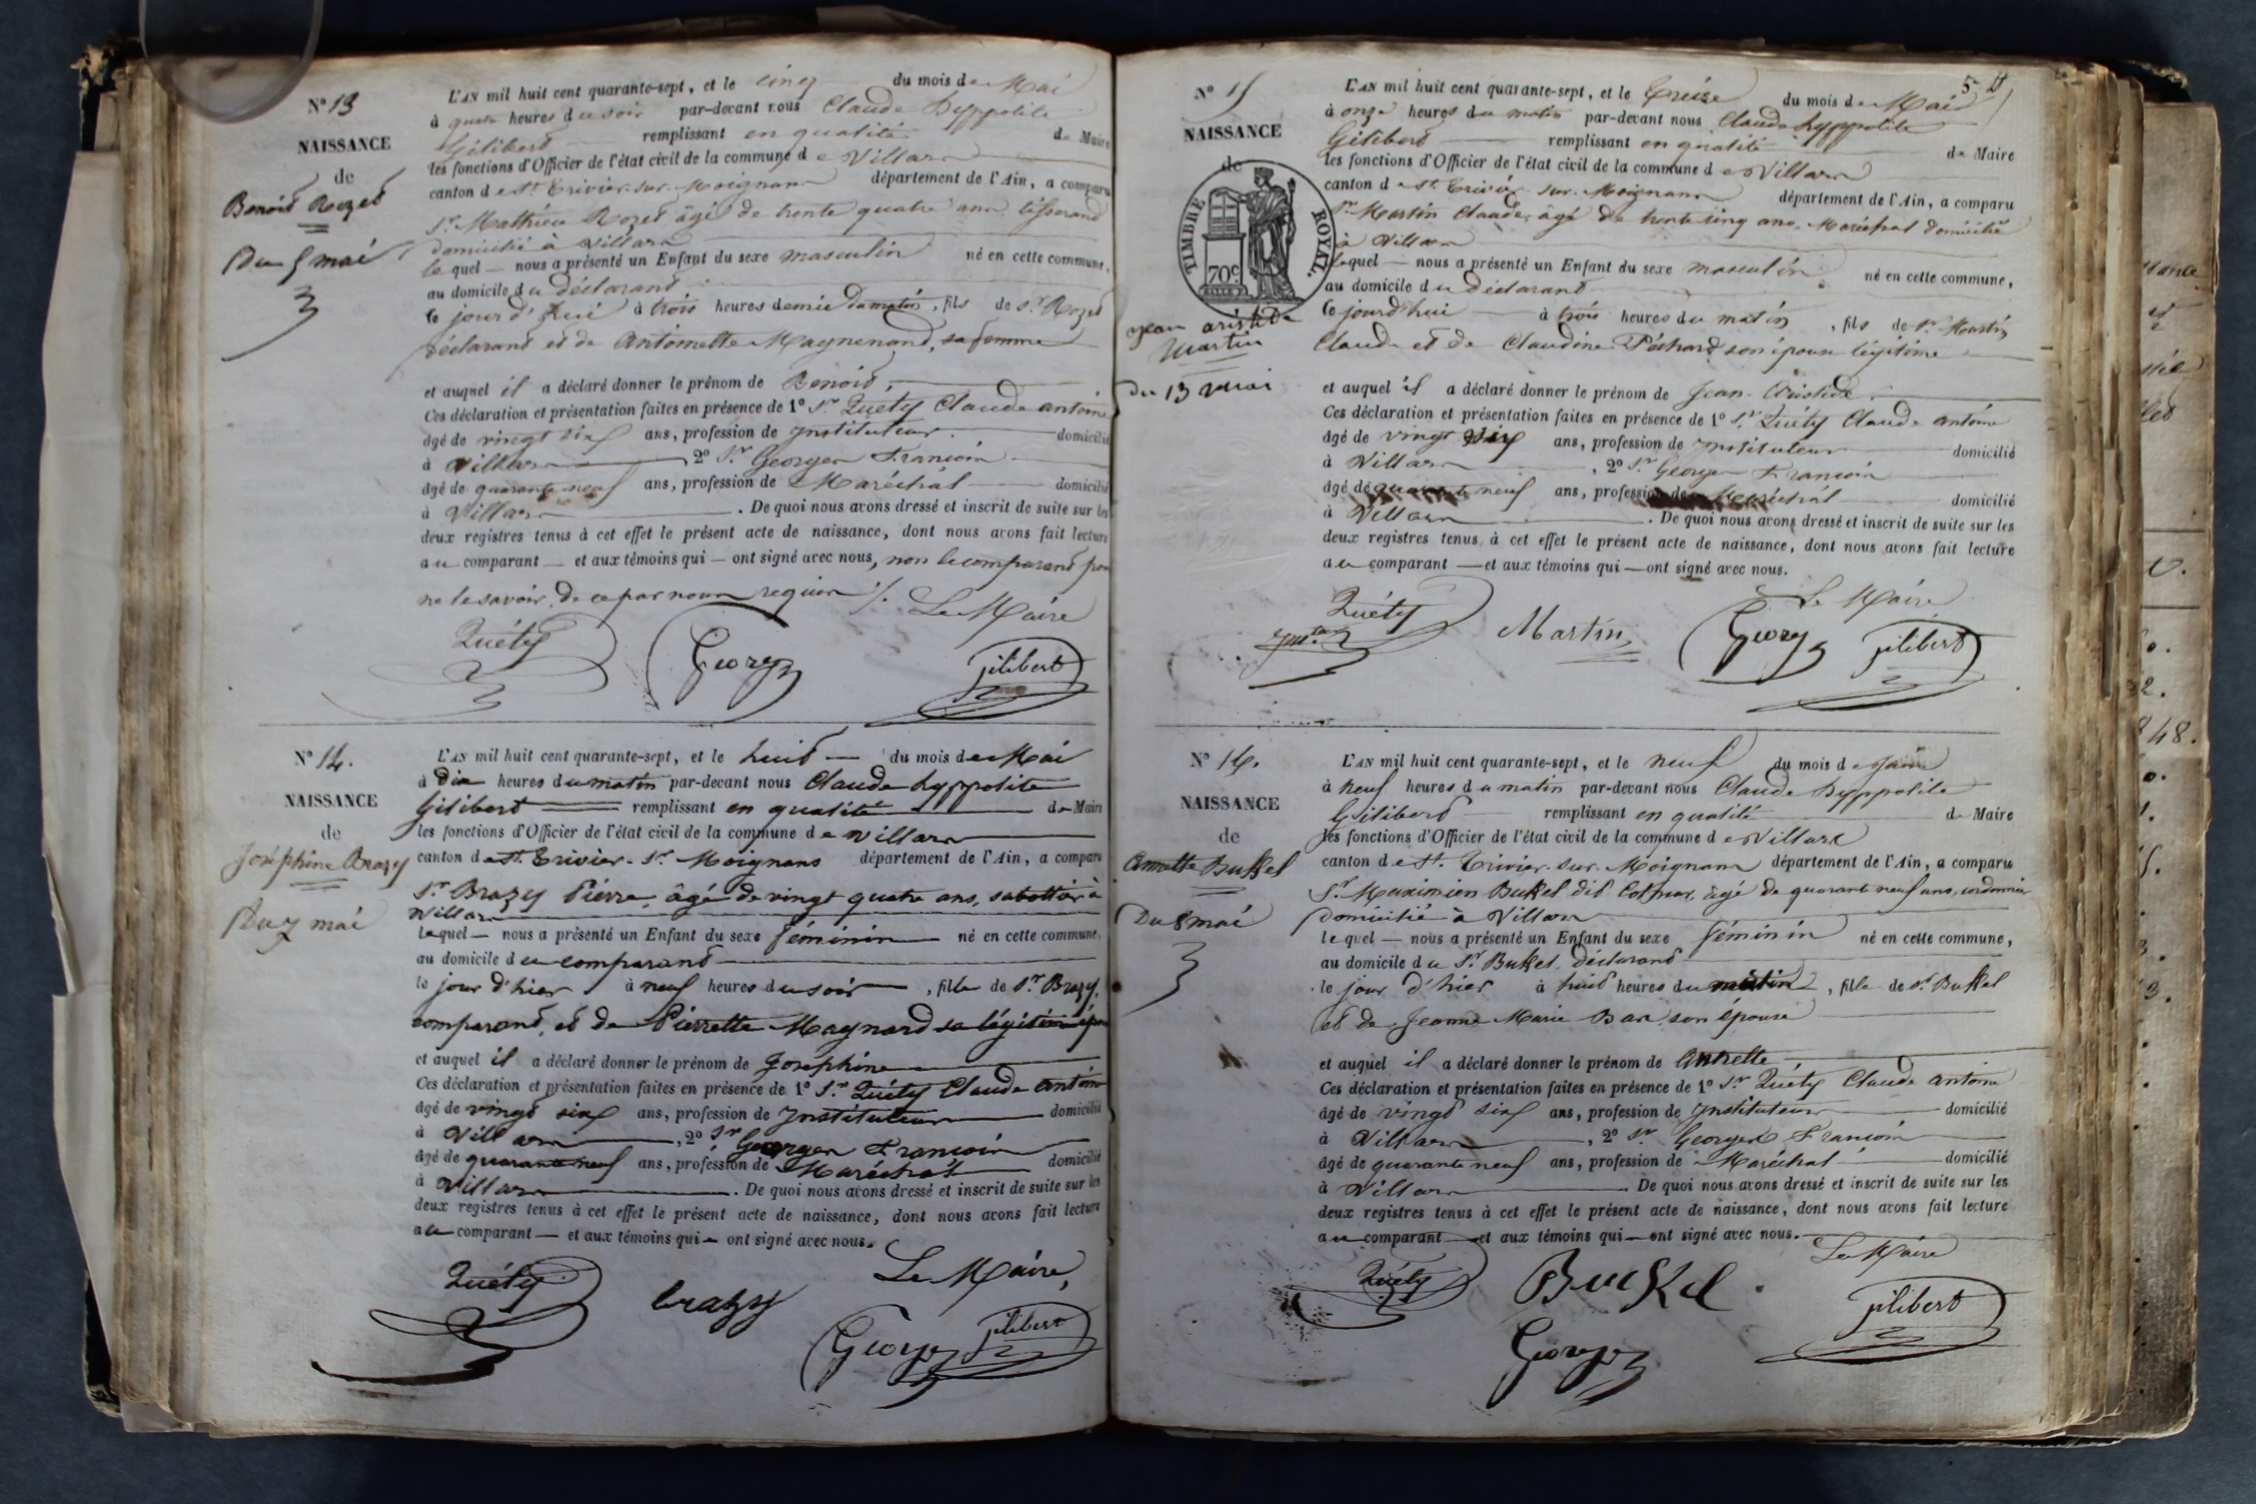 N° 13
NAISSANCE
de
Benoit Rozet
Du 5 mai
L'AN mil huit cent quarante-sept, et le cinq du mois de Mai
à quatre heures du soir par-devant nous Claude Hyppolite
Gilibert remplissant en qualité de Maire
les fonctions d'Officier de l'état civil de la commune de Villars
canton de St. Trivier-sur-Moignans département de l'Ain, a comparu
Sr. Mathieu Rozet âgé de trente quatre ans, tisserand
domicilié à Villars
lequel — nous a présenté un Enfant du sexe masculin né en cette commune,
au domicile du déclarant
le jour d'hui à trois heures demie du matin, fils de Sr. Rozet
déclarant et de Antoinette Magnenand, sa femme
et auquel il a déclaré donner le prénom de Benoit,
Ces déclaration et présentation faites en présence de 1° Sr. Quéty Claude antoine
âgé de vingt six ans, profession de Instituteur domicilié
à Villars, 2° Sr. Georges François
âgé de quarante neuf ans, profession de Maréchal domicilié
à Villars. De quoi nous avons dressé et inscrit de suite sur les
deux registres tenus à cet effet le présent acte de naissance, dont nous avons fait lecture
au comparant — et aux témoins qui — ont signé avec nous, non le comparant pour
ne le savoir, de ce par nous requis /. Le Maire
Quéty Georges gilibert
N° 14.
NAISSANCE
de
Joséphine Brazy
Du 7 mai
L'AN mil huit cent quarante-sept, et le huit — du mois de Mai
à Dix heures du matin par-devant nous Claude hyppolite
Gilibert remplissant en qualité de Maire
les fonctions d'Officier de l'état civil de la commune de Villars
canton de St. Trivier-Sr. Moignans département de l'Ain, a comparu
Sr. Brazy Pierre, âgé de vingt quatre ans, sabottier à
Villars
lequel — nous a présenté un Enfant du sexe féminin né en cette commune,
au domicile du comparant
le jour d'hier à neuf heures du soir, fille de Sr. Brazy,
comparant, et de Pierrette Magnard sa légitime
et auquel il a déclaré donner le prénom de Joséphine
Ces déclaration et présentation faites en présence de 1° Sr. Quéty Claude antoine
âgé de vingt six ans, profession de Instituteur domicilié
à Villars, 2° Sr Georges François
âgé de quarante neuf ans, profession de Maréchal domicilié
à Villars. De quoi nous avons dressé et inscrit de suite sur les
deux registres tenus à cet effet le présent acte de naissance, dont nous avons fait lecture
au comparant — et aux témoins qui — ont signé avec nous.
Le Maire,
Quéty brazy Georges gilibert
5
N° 15
NAISSANCE
de
TIMBRE ROYAL.
70c
Jean aristide
Martin
du 13 mai
L'AN mil huit cent quarante-sept, et le Treize du mois de Mai
à onze heures du matin par-devant nous Claude hyppolite
Gilibert remplissant en qualité de Maire
les fonctions d'Officier de l'état civil de la commune de Villars
canton de St. Trivier-sur-Moignans département de l'Ain, a comparu
Sr. Martin Claude, âgé de trente cinq ans, Maréchal domicilié
à Villars
lequel — nous a présenté un Enfant du sexe masculin né en cette commune,
au domicile du déclarant
le jourd'hui à trois heures du matin, fils de Sr. Martin
Claude et de Claudine Péchard son épouse légitime
et auquel il a déclaré donner le prénom de Jean Aristide
Ces déclaration et présentation faites en présence de 1° Sr. Quéty Claude antoine
âgé de vingt six ans, profession de Instituteur domicilié
à Villars, 2° Sr. Georges François
âgé de quarante neuf ans, profession de Maréchal domicilié
à Villars. De quoi nous avons dressé et inscrit de suite sur les
deux registres tenus à cet effet le présent acte de naissance, dont nous avons fait lecture
au comparant — et aux témoins qui — ont signé avec nous.
Le Maire
Quéty Martin Georges gilibert
N° 16.
NAISSANCE
de
Buckel
Du 8 mai
L'AN mil huit cent quarante-sept, et le neuf du mois de
à neuf heures du matin par-devant nous Claude Hyppolite
Gilibert remplissant en qualité de Maire
les fonctions d'Officier de l'état civil de la commune de Villars
canton de St. Trivier-sur-Moignans département de l'Ain, a comparu
Sr. Maximien Buckel dit Colmar, âgé de quarante neuf ans, cordonnier
domicilié à Villars
lequel — nous a présenté un Enfant du sexe féminin né en cette commune,
au domicile du Sr. Buckel, déclarant
le jour d'hier à huit heures du matin, fille de Sr. Buckel
et de Jeanne Marie son épouse
et auquel il a déclaré donner le prénom de
Ces déclaration et présentation faites en présence de 1° Sr. Quéty Claude antoine
âgé de vingt six ans, profession de Instituteur domicilié
à Villars, 2° Sr. Georges François
âgé de quarante neuf ans, profession de Maréchal domicilié
à Villars. De quoi nous avons dressé et inscrit de suite sur les
deux registres tenus à cet effet le présent acte de naissance, dont nous avons fait lecture
au comparant — et aux témoins qui — ont signé avec nous.
Le Maire
Quéty Buckel gilibert
Georges